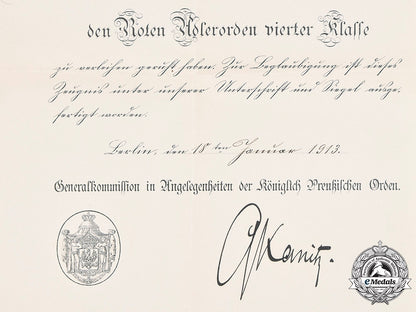 den Roten Adlerorden vierter Klasse
zu verleihen geruht haben. Zur Beglaubigung ist dieses
Zeugnis unter unserer Unterschrift und Siegel ausge-
fertigt worden.
Berlin, den 18ten Januar 1913.
Generalkommission in Angelegenheiten der Königlich Preußischen Orden.
Kanitz.
eMedals